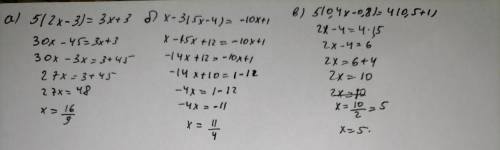 а) 5(2x-3)=3x+3
30x-45=3x+3
30x-3x=3+45
27x=3+45
27x=48
x=16/9
б) x-3(5x-4)=-10x+1
x-15x+12=-10x+1
-14x+12=-10x+1
-14x+10=1-12
-4x=1-12
-4x=-11
x=11/4
в) 5(0,4x-0,8)=4(0,5+1)
2x-4=4·15
2x-4=6
2x=6+4
2x=10
2x=10
x=10/2=5
x=5.